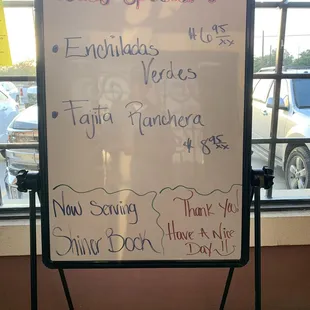 Specials
$6.95
• Enchiladas
Verdes
• Fajita Ranchera
$8.95
Now Serving
Shiner Bock
Thank You
Have A Nice
Day!!